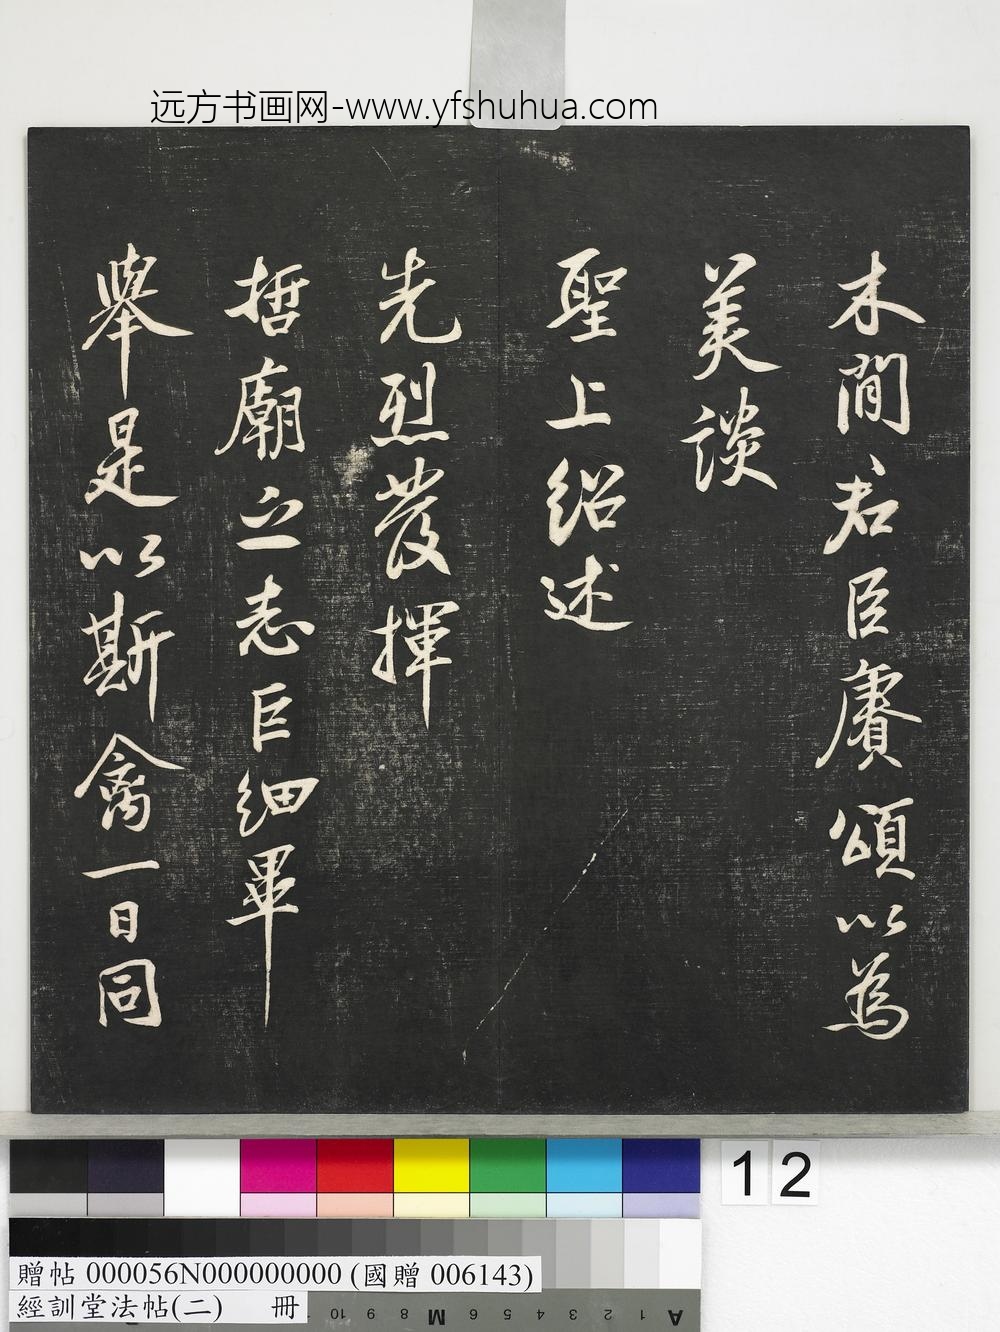 远方书画网-www.yfshuhua.com
木間君臣賡頌以為
美談
聖上紹述
先烈發揮
哲廟之志巨細畢
舉是以斯禽一日同
12
贈帖 000056N000000000 (國贈 006143)
經訓堂法帖(二) 冊
A 1 2 3 4 5 6 M 8 9 10